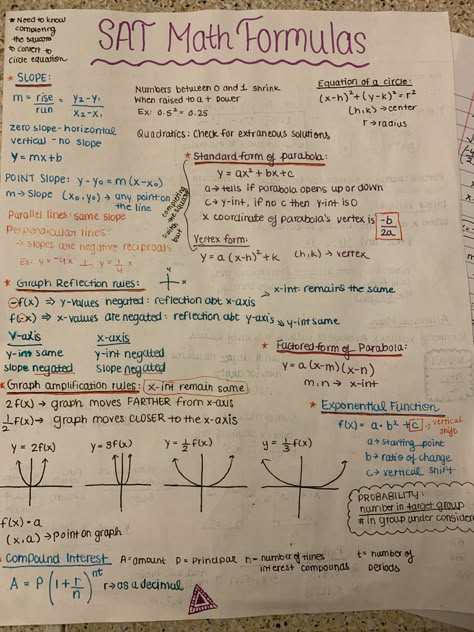 * Need to know
completing
the square
to convert to
circle equation
SAT Math Formulas
* SLOPE:
m = rise/run = y₂-y₁/x₂-x₁
zero slope - horizontal
vertical - no slope
y = mx+b
POINT Slope: y-y₀ = m(x-x₀)
m → Slope (x₀, y₀) → any point on
the line
Parallel lines: same slope
Perpendicular lines:
→ slopes are negative reciprocals
Ex: y = -4x ⊥ y = 1/4 x
Numbers between 0 and 1 shrink
When raised to a + power
Ex: 0.5² = 0.25
Quadratics: Check for extraneous solutions
Equation of a circle:
(x-h)² + (y-k)² = r²
(h,k) → center
r → radius
completing the square
switch
* Standard form of parabola:
y = ax² + bx + c
a → tells if parabola opens up or down
c → y-int, if no c then y-int is 0
x coordinate of parabola's vertex is -b/2a
Vertex form:
y = a(x-h)² + k (h,k) → vertex
* Graph Reflection rules:
y
x
-f(x) ⇒ y-values negated: reflection abt x-axis → x-int remains the same
f(-x) ⇒ x-values are negated: reflection abt y-axis → y-int same
y-axis x-axis
y-int same y-int negated
slope negated slope negated
* Factored form of Parabola:
y = a(x-m)(x-n)
m, n → x-int
* Graph amplification rules: (x-int remain same)
2f(x) → graph moves FARTHER from x-axis
1/2 f(x) → graph moves CLOSER to the x-axis
y = 2f(x) y = 3f(x) y = 1/2 f(x) y = 1/3 f(x)
* Exponential Function
f(x) = a · bˣ + c → vertical
shift
a → starting point
b → ratio of change
c → vertical shift
PROBABILITY:
number in target group
# in group under
f(x) = a
(x, a) → point on graph
* Compound Interest A = amount P = Principal n - number of times
interest compounds
t = number of
periods
A = P(1 + r/n)ⁿᵗ r → as a decimal